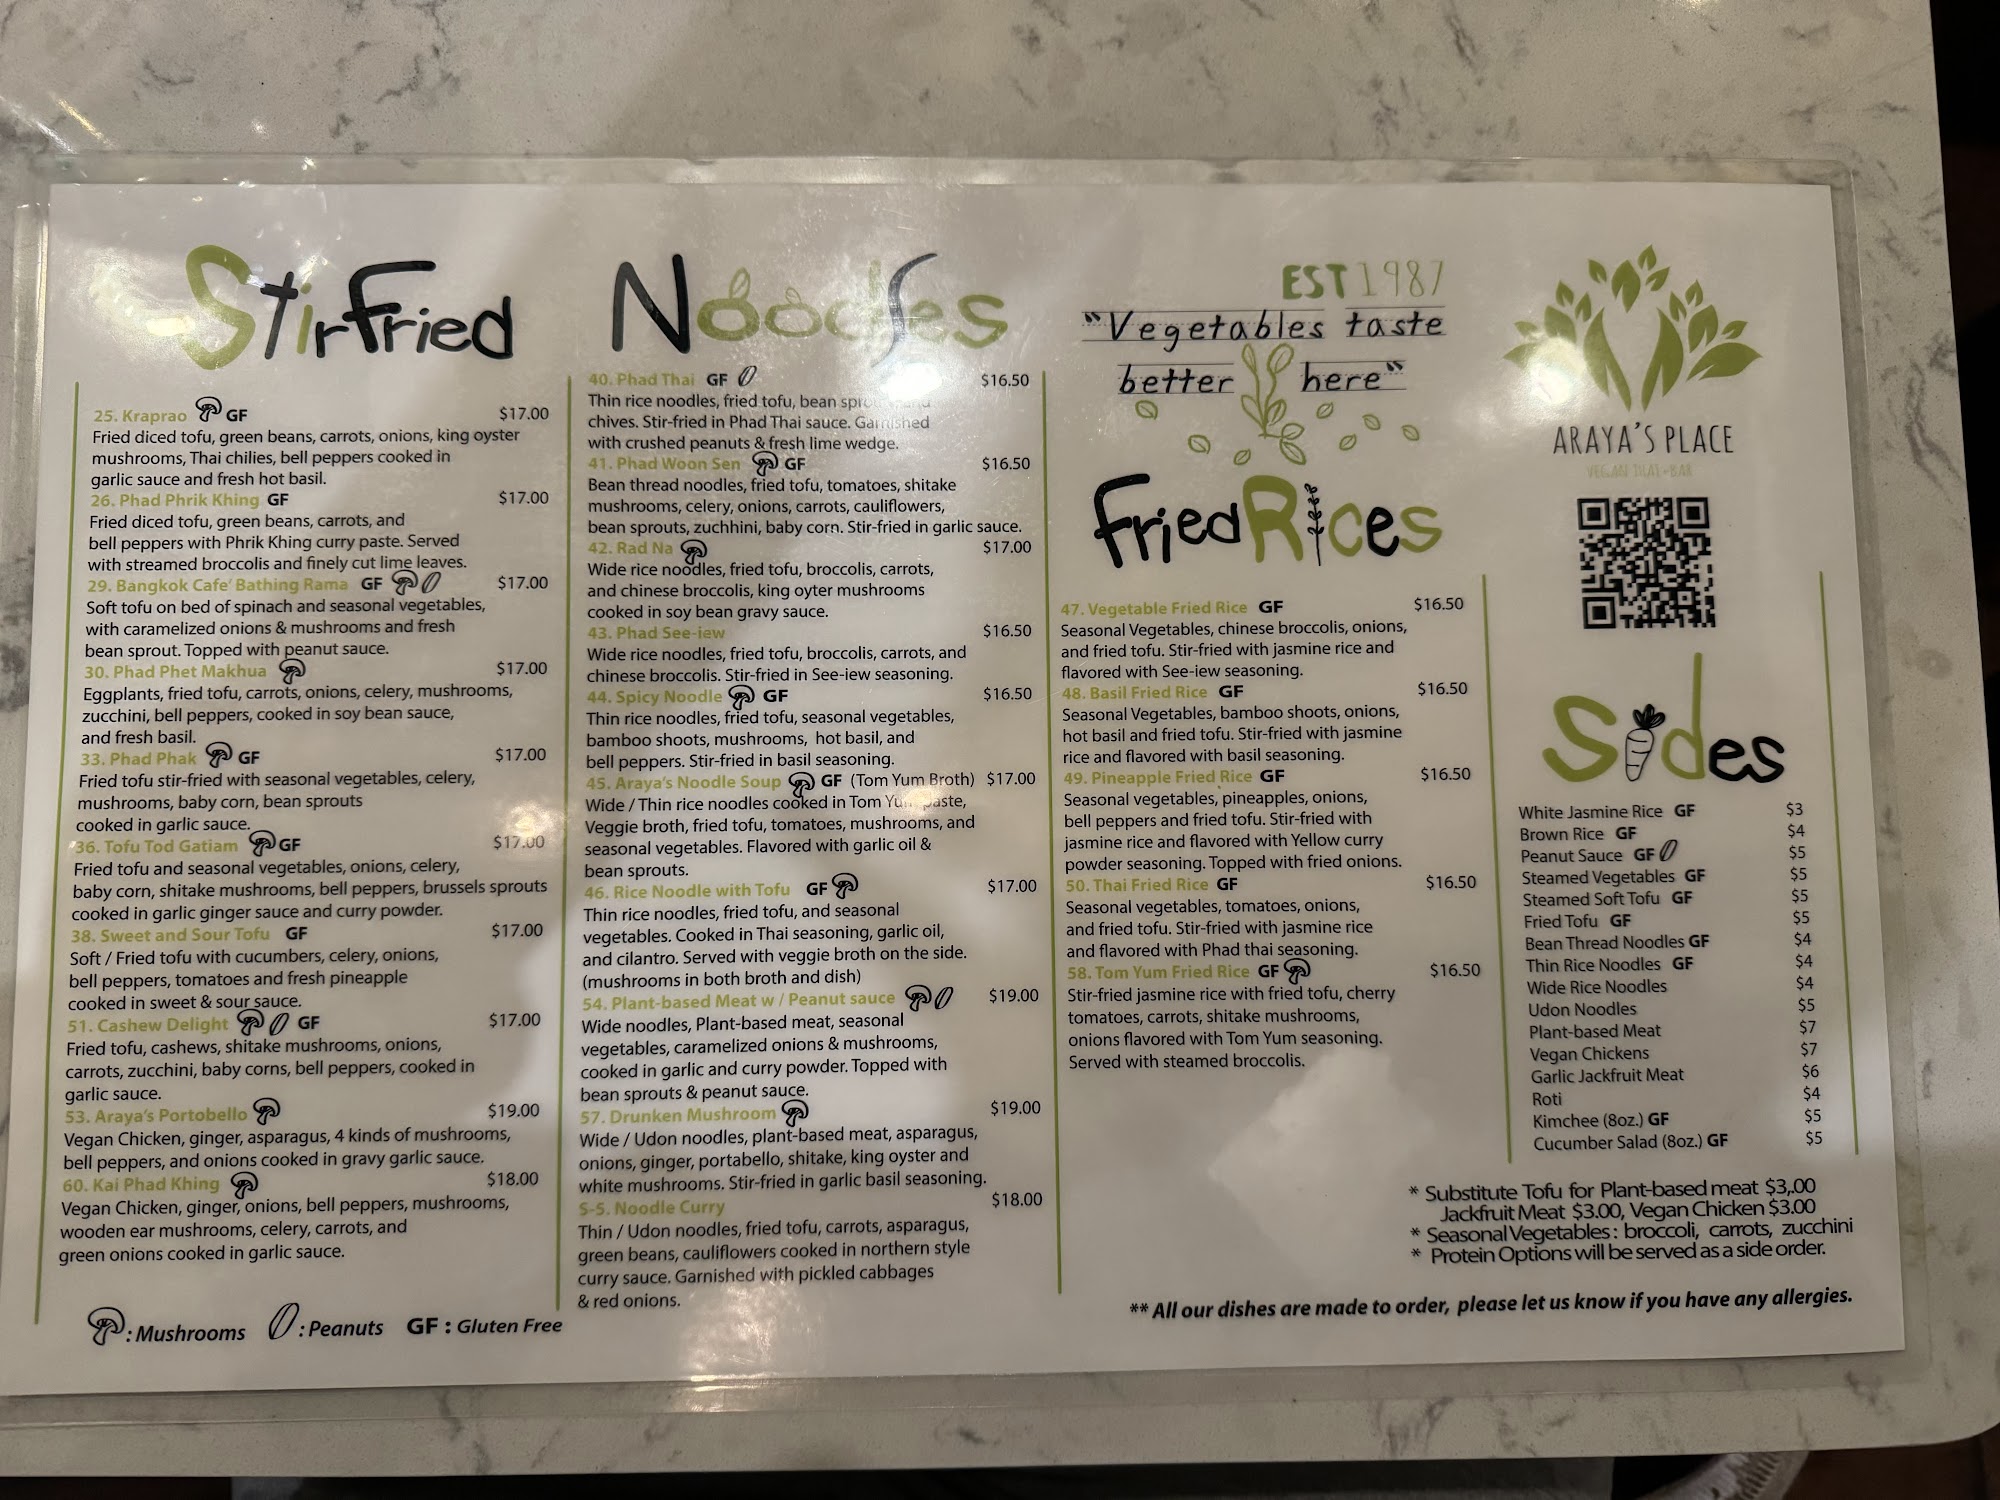 StirFried
25. Kraprao GF $17.00
Fried diced tofu, green beans, carrots, onions, king oyster
mushrooms, Thai chilies, bell peppers cooked in
garlic sauce and fresh hot basil.
26. Phad Phrik Khing GF $17.00
Fried diced tofu, green beans, carrots, and
bell peppers with Phrik Khing curry paste. Served
with streamed broccolis and finely cut lime leaves.
29. Bangkok Cafe' Bathing Rama GF $17.00
Soft tofu on bed of spinach and seasonal vegetables,
with caramelized onions & mushrooms and fresh
bean sprout. Topped with peanut sauce.
30. Phad Phet Makhua $17.00
Eggplants, fried tofu, carrots, onions, celery, mushrooms,
zucchini, bell peppers, cooked in soy bean sauce,
and fresh basil.
33. Phad Phak GF $17.00
Fried tofu stir-fried with seasonal vegetables, celery,
mushrooms, baby corn, bean sprouts
cooked in garlic sauce.
36. Tofu Tod Gatiam GF $17.00
Fried tofu and seasonal vegetables, onions, celery,
baby corn, shitake mushrooms, bell peppers, brussels sprouts
cooked in garlic ginger sauce and curry powder.
38. Sweet and Sour Tofu GF $17.00
Soft / Fried tofu with cucumbers, celery, onions,
bell peppers, tomatoes and fresh pineapple
cooked in sweet & sour sauce.
51. Cashew Delight GF $17.00
Fried tofu, cashews, shitake mushrooms, onions,
carrots, zucchini, baby corns, bell peppers, cooked in
garlic sauce.
53. Araya's Portobello $19.00
Vegan Chicken, ginger, asparagus, 4 kinds of mushrooms,
bell peppers, and onions cooked in gravy garlic sauce.
60. Kai Phad Khing $18.00
Vegan Chicken, ginger, onions, bell peppers, mushrooms,
wooden ear mushrooms, celery, carrots, and
green onions cooked in garlic sauce.
: Mushrooms : Peanuts GF : Gluten Free
Noodles
40. Phad Thai GF $16.50
Thin rice noodles, fried tofu, bean
chives. Stir-fried in Phad Thai sauce. Garnished
with crushed peanuts & fresh lime wedge.
41. Phad Woon Sen GF $16.50
Bean thread noodles, fried tofu, tomatoes, shitake
mushrooms, celery, onions, carrots, cauliflowers,
bean sprouts, zuchhini, baby corn. Stir-fried in garlic sauce.
42. Rad Na $17.00
Wide rice noodles, fried tofu, broccolis, carrots,
and chinese broccolis, king oyter mushrooms
cooked in soy bean gravy sauce.
43. Phad See-iew $16.50
Wide rice noodles, fried tofu, broccolis, carrots, and
chinese broccolis. Stir-fried in See-iew seasoning.
44. Spicy Noodle GF $16.50
Thin rice noodles, fried tofu, seasonal vegetables,
bamboo shoots, mushrooms, hot basil, and
bell peppers. Stir-fried in basil seasoning.
45. Araya's Noodle Soup GF (Tom Yum Broth) $17.00
Wide / Thin rice noodles cooked in Tom Yum paste,
Veggie broth, fried tofu, tomatoes, mushrooms, and
seasonal vegetables. Flavored with garlic oil &
bean sprouts.
46. Rice Noodle with Tofu GF $17.00
Thin rice noodles, fried tofu, and seasonal
vegetables. Cooked in Thai seasoning, garlic oil,
and cilantro. Served with veggie broth on the side.
(mushrooms in both broth and dish)
54. Plant-based Meat w / Peanut sauce $19.00
Wide noodles, Plant-based meat, seasonal
vegetables, caramelized onions & mushrooms,
cooked in garlic and curry powder. Topped with
bean sprouts & peanut sauce.
57. Drunken Mushroom $19.00
Wide / Udon noodles, plant-based meat, asparagus,
onions, ginger, portabello, shitake, king oyster and
white mushrooms. Stir-fried in garlic basil seasoning.
S-5. Noodle Curry $18.00
Thin / Udon noodles, fried tofu, carrots, asparagus,
green beans, cauliflowers cooked in northern style
curry sauce. Garnished with pickled cabbages
& red onions.
EST 1987
"Vegetables taste
better here"
Fried Rices
47. Vegetable Fried Rice GF $16.50
Seasonal Vegetables, chinese broccolis, onions,
and fried tofu. Stir-fried with jasmine rice and
flavored with See-iew seasoning.
48. Basil Fried Rice GF $16.50
Seasonal Vegetables, bamboo shoots, onions,
hot basil and fried tofu. Stir-fried with jasmine
rice and flavored with basil seasoning.
49. Pineapple Fried Rice GF $16.50
Seasonal vegetables, pineapples, onions,
bell peppers and fried tofu. Stir-fried with
jasmine rice and flavored with Yellow curry
powder seasoning. Topped with fried onions.
50. Thai Fried Rice GF $16.50
Seasonal vegetables, tomatoes, onions,
and fried tofu. Stir-fried with jasmine rice
and flavored with Phad thai seasoning.
58. Tom Yum Fried Rice GF $16.50
Stir-fried jasmine rice with fried tofu, cherry
tomatoes, carrots, shitake mushrooms,
onions flavored with Tom Yum seasoning.
Served with steamed broccolis.
ARAYA'S PLACE
VEGAN THAI+BAR
Sides
White Jasmine Rice GF $3
Brown Rice GF $4
Peanut Sauce GF $5
Steamed Vegetables GF $5
Steamed Soft Tofu GF $5
Fried Tofu GF $5
Bean Thread Noodles GF $4
Thin Rice Noodles GF $4
Wide Rice Noodles $4
Udon Noodles $5
Plant-based Meat $7
Vegan Chickens $7
Garlic Jackfruit Meat $6
Roti $4
Kimchee (8oz.) GF $5
Cucumber Salad (8oz.) GF $5
* Substitute Tofu for Plant-based meat $3,.00
Jackfruit Meat $3.00, Vegan Chicken $3.00
* Seasonal Vegetables: broccoli, carrots, zucchini
* Protein Options will be served as a side order.
** All our dishes are made to order, please let us know if you have any allergies.